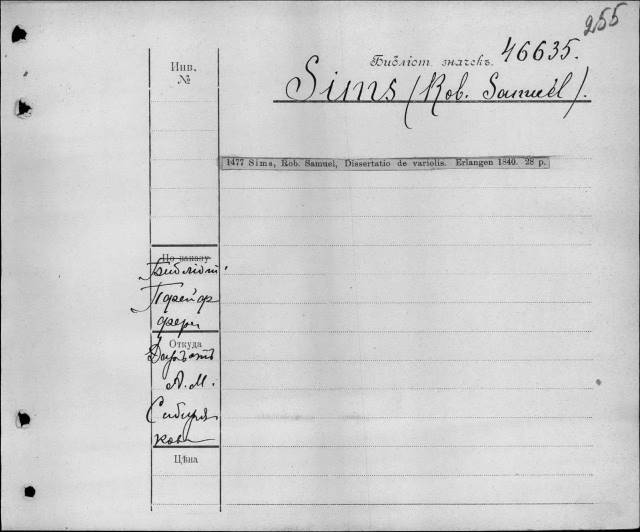 255
Библіот. значекъ. 46635.
Инв.
№
Sims (Rob. Samuel).
1477 Sims, Rob. Samuel, Dissertatio de variolis. Erlangen 1840. 28 p.
По заказу
Библіот.
Пфейф
фера
Откуда
Даръ отъ
А. М.
Сибиря
кова
Цѣна